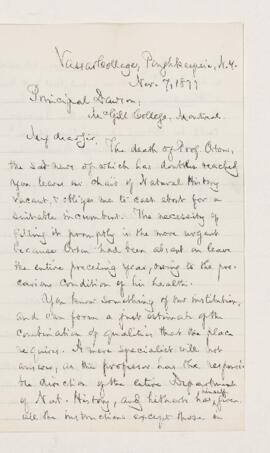 Vassar College, Poughkeepsie, N.Y.
Nov. 7, 1877
Principal Dawson,
McGill College, Montreal.
My dear Sir,
The death of Prof. Orton,
the sad news of which has doubtless reached
you leaves our chair of Natural History
vacant, & obliges me to cast about for a
suitable incumbent. The necessity of
filling it promptly is the more urgent
because Orton had been absent on leave
the entire preceding year, owing to the pre-
carious condition of his health.
You know something of our institution,
and can form a just estimate of the
combination of qualities that the place
requires. A mere specialist will not
answer, as the professor has the responsi-
ble direction of the entire Department
of Nat. History, and hitherto has himself given
all the instructions except those in